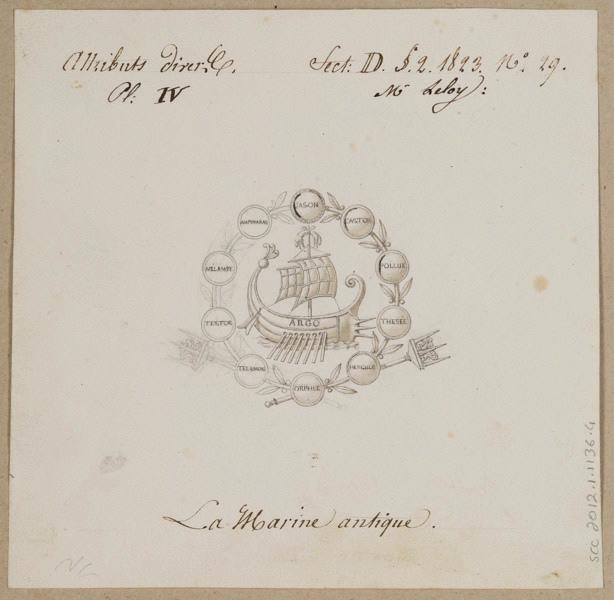 Attributs divers.
Sect: D. §. 2. 1823. Nº. 29.
Pl: IV
Mr Leloy:
JASON
CASTOR
POLLUX
THESEE
HERCULE
ORPHEE
TELAMON
NESTOR
AMPHIARAS
ARGO
La Marine antique.
SCC 2012.1.1136.4